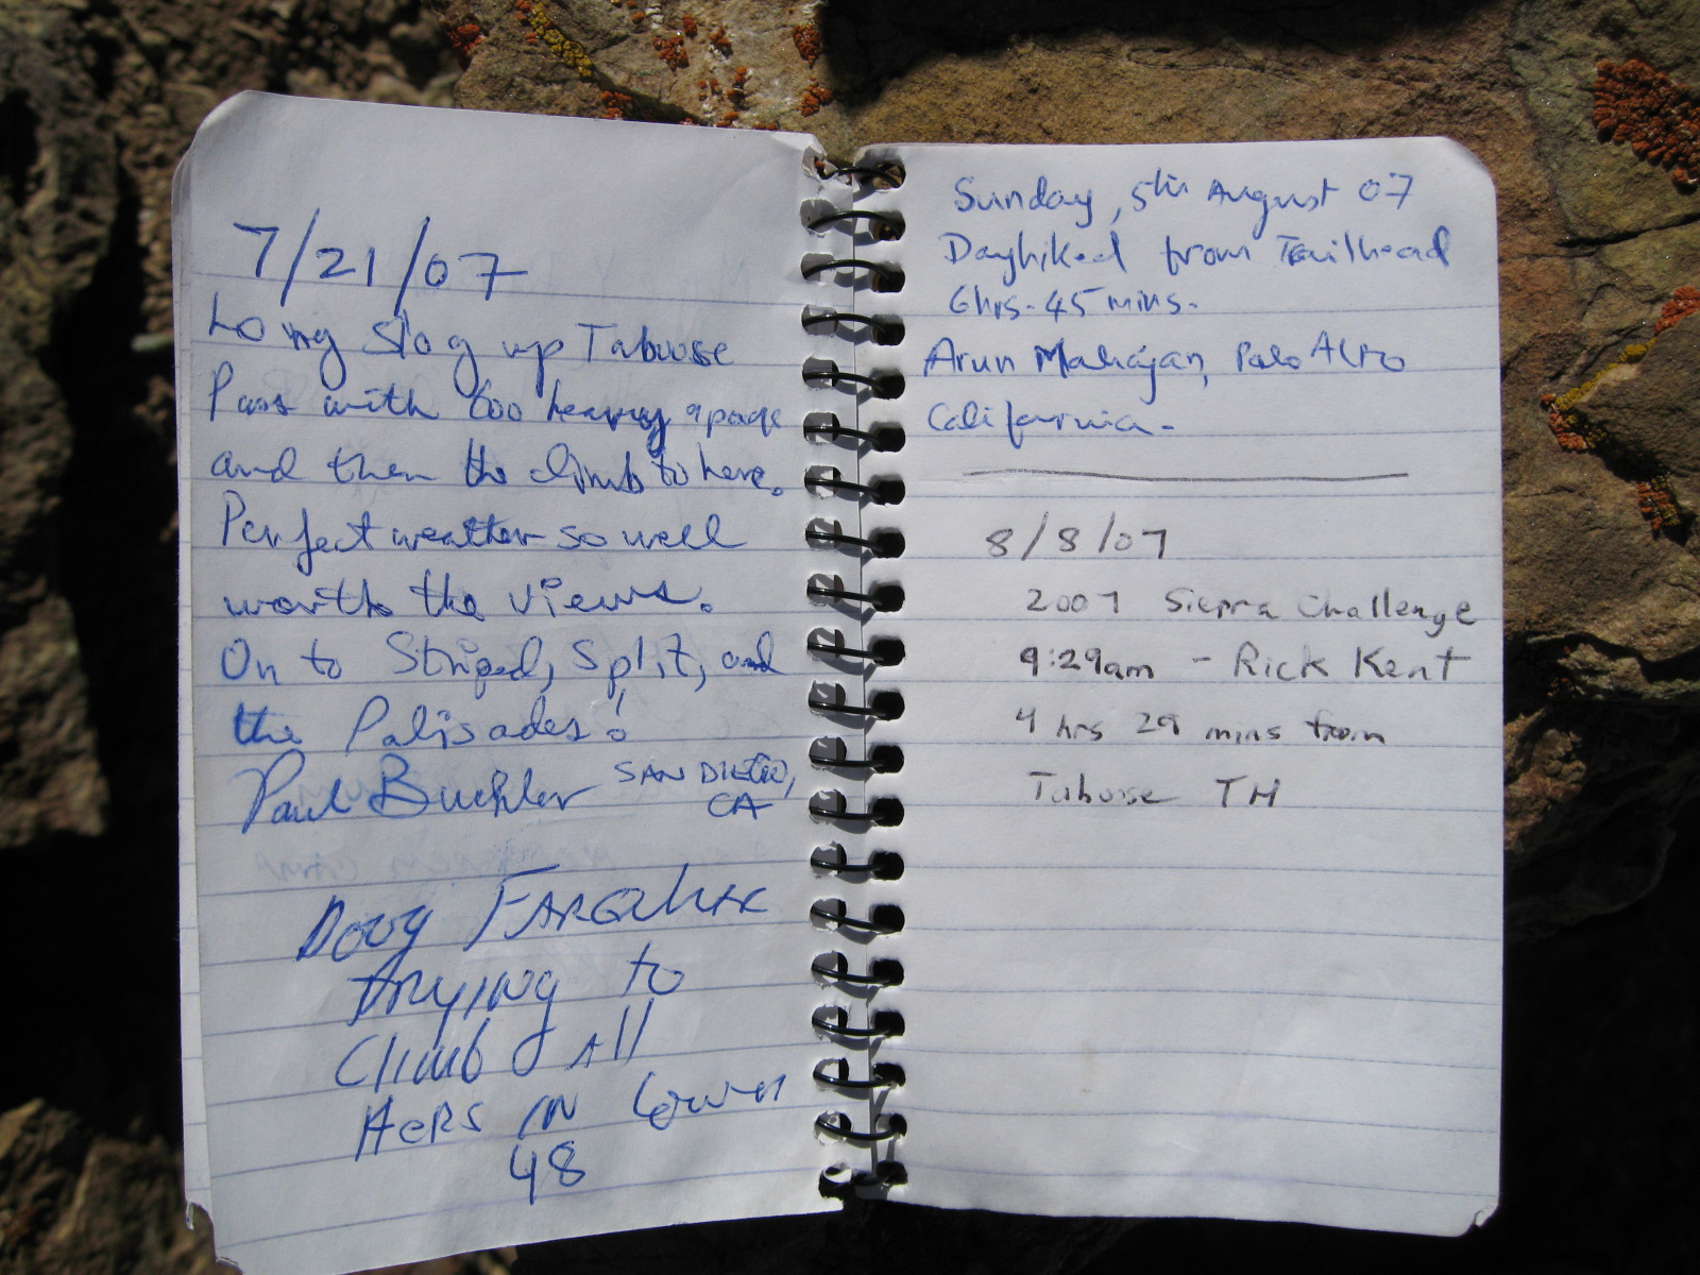 7/21/07
Long slog up Taboose
Pass with too heavy a pack
and then the climb to here.
Perfect weather so well
worth the views.
On to Striped, Split, and
the Palisades!
Paul Buchler SAN DIEGO,
CA
Doug
Trying to
Climb All
in Lower
48
Sunday, 5th August 07
Dayhiked from Trailhead
6hrs-45 mins.
Arun Mahajan, Palo Alto
California-
8/8/07
2007 Sierra Challenge
9:29am - Rick Kent
4 hrs 29 mins from
Taboose TH